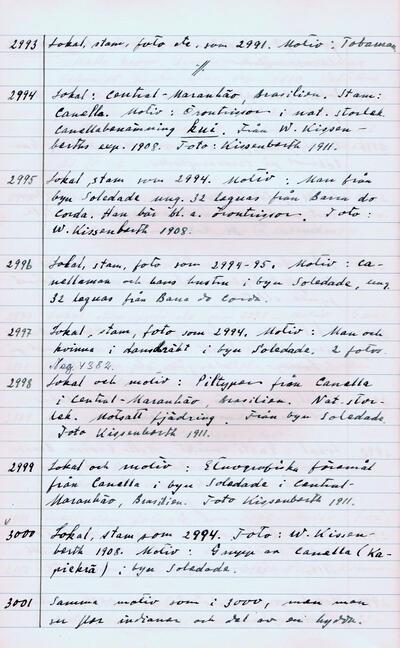 2993 Lokal, stam, foto etc. som 2991. Motiv: Tobaman
-//-
2994 Lokal: Central-Maranhão, Brasilien. Stam:
Canella. Motiv: Örontrissor i nat. storlek.
Canellabenämning kui. Från W. Kissen-
berths exp. 1908. Foto: Kissenberth 1911.
2995 Lokal, stam som 2994. Motiv: Man från
byn Soledade ung. 32 leguas från Barra do
Corda. Han bär bl. a. örontrissor. Foto:
W. Kissenberth 1908.
2996 Lokal, stam, foto som 2994-95. Motiv: Ca-
nellaman och hans hustru i byn Soledade, ung.
32 leguas från Barra do Corda.
2997 Lokal, stam, foto som 2994. Motiv: Man och
kvinna i dansdräkt i byn Soledade. 2 foton.
Neg. 4382.
2998 Lokal och motiv: Piltyper från Canella
i Central-Maranhão, Brasilien. Nat. stor-
lek. Motsatt fjädring. Från byn Soledade.
Foto Kissenberth 1911.
2999 Lokal och motiv: Etnografiska föremål
från Canella i byn Soledade i Central-
Maranhão, Brasilien. Foto Kissenberth 1911.
v
3000 Lokal, stam som 2994. Foto: W. Kissen-
berth 1908. Motiv: Grupp av Canella (Ka-
piekrã) i byn Soledade.
3001 Samma motiv som i 3000, men man
ser fler indianer och del av en hydda.